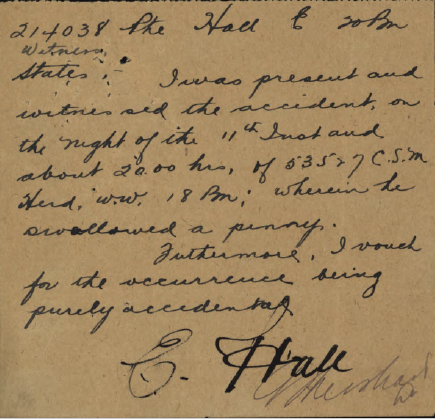 214038 Pte Hall E 20 Bn
Witness
States:-
I was present and
witnessed the accident, on
the night of the 11th Inst and
about 20.00 hrs, of 53527 C.S.M
Herd, W.W. 18 Bn; wherein he
swallowed a penny.
Futhermore, I vouch
for the occurrence being
purely accidental
E. Hall